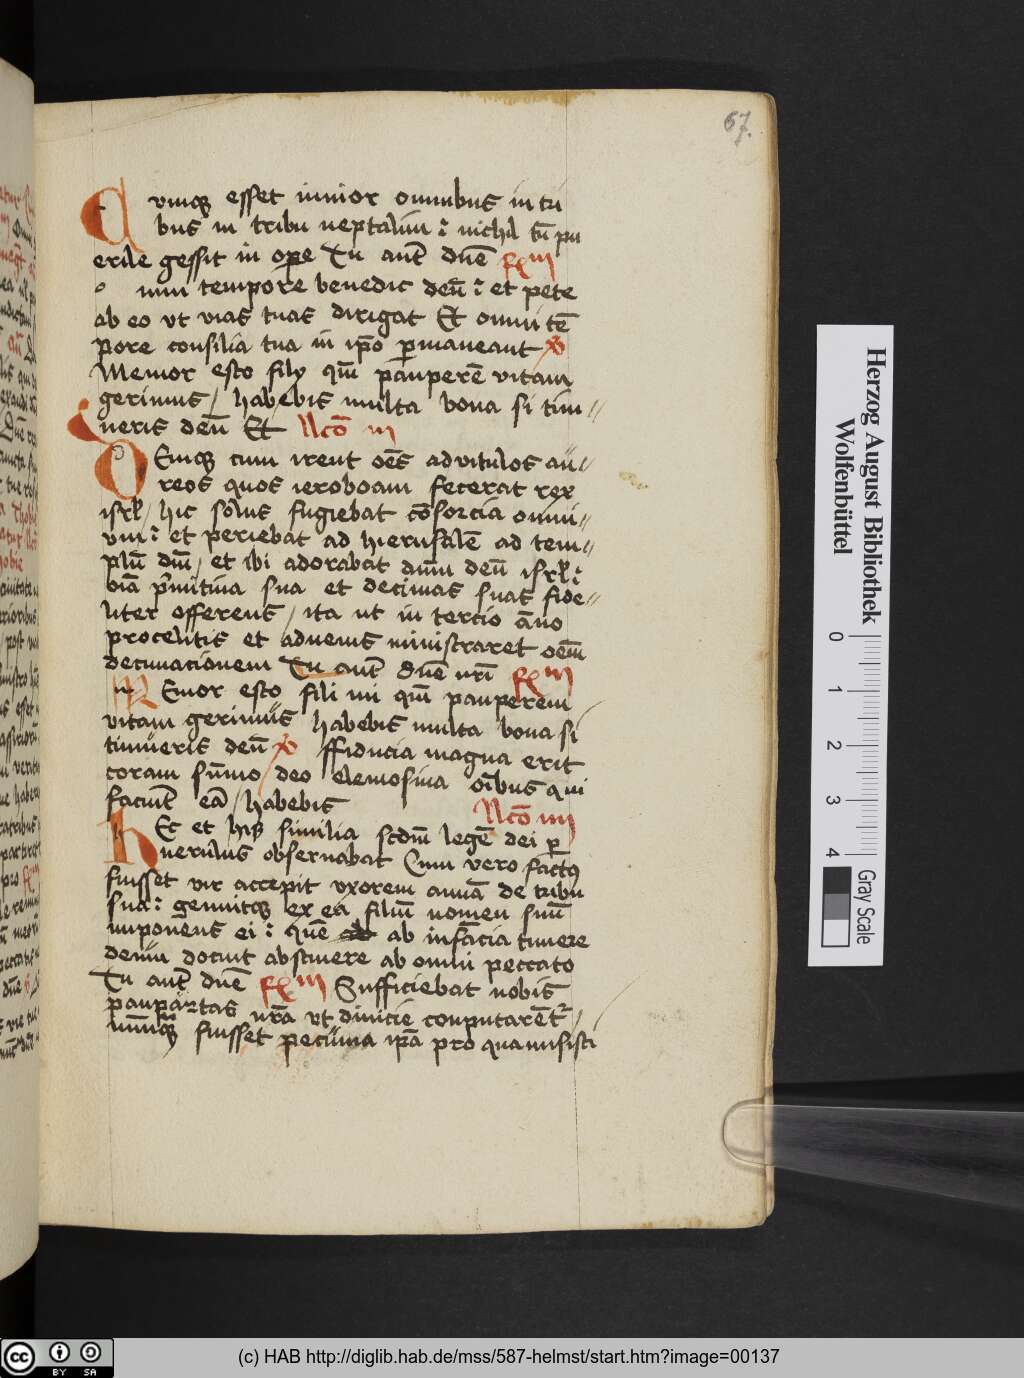 67.
Cumque esset iunior omnibus in tri
bus in tribu neptalim : nichil tn̄ pu
erile gessit in ope Tu aut dn̄e R̄m
Omni tempore benedic deū : et pete
ab eo vt vias tuas dirigat Et omni tē
pore consilia tua in ip̄o ꝑmaneant
Memor esto fily qm̄ pauperē vitam
gerimus / habebis multa bona si tim//
ueris deū Et llcō iii
Deniqꝫ cum irent oēs ad vitulos au//
reos quos ieroboam fecerat rex
isrl / hic solus fugiebat cōsorcia omni//
um : et pergebat ad hierusalē ad tem//
plū dn̄i / et ibi adorabat dn̄m deū isrl :
oīa p̄mitiua sua et decimas suas fide//
liter offerens / ita ut in tercio āno
proselitis et aduenis ministraret oēm
decimacionem Tu aut dn̄e nr̄i
Memor esto fili mi qm̄ pauperem
vitam gerimus habebis multa bona si
timueris deū ffiducia magna erit
coram sūmo deo elemosina oībus qui
faciūt eā / habebis llcō iiii
Hec et hiis similia scdm̄ legē dei ꝑ
uerulus obseruabat Cum vero factus
fuisset vir accepit vxorem annā de tribu
sua : genuitqꝫ ex ea filiū nomen suū
imponens ei : quē ab infācia timere
deum docuit abstinere ab omni peccato
Tu aut dn̄e Sufficiebat nobis
paupertas nr̄a vt diuicie conputarēt
nūnqꝫ fuisset pecunia ip̄a pro qua misisti
Herzog August Bibliothek
Wolfenbüttel
0 1 2 3 4
Gray Scale
cc BY SA
(c) HAB http://diglib.hab.de/mss/587-helmst/start.htm?image=00137